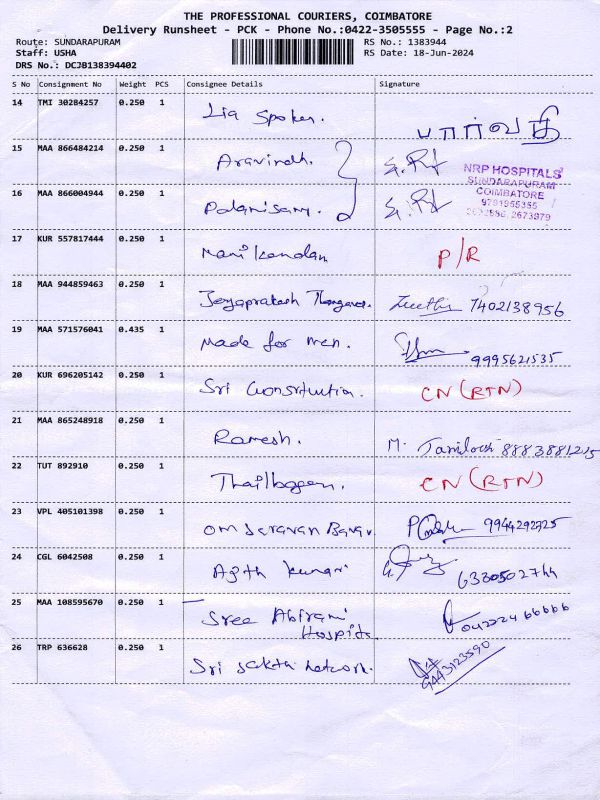 THE PROFESSIONAL COURIERS, COIMBATORE
Delivery Runsheet - PCK - Phone No.:0422-3505555 - Page No.:2
Route: SUNDARAPURAM
Staff: USHA
DRS No.: DCJB138394402
RS No.: 1383944
RS Date: 18-Jun-2024
S No Consignment No Weight PCS Consignee Details Signature
14 TMI 30284257 0.250 1 Lia Spoken. பார்வதி
15 MAA 866484214 0.250 1 Aravindh.
16 MAA 866004944 0.250 1 Palanisamy.
NRP HOSPITALS
SUNDARAPURAM
COIMBATORE
9791955355
2673979
17 KUR 557817444 0.250 1 Manikandan P/R
18 MAA 944859463 0.250 1 Jeyaprakash 7402138956
19 MAA 571576041 0.435 1 Made for men. 9995621535
20 KUR 696205142 0.250 1 Sri Construction. CN (RTN)
21 MAA 865248918 0.250 1 Ramesh. M. 8883881215
22 TUT 892910 0.250 1 CN (RTN)
23 VPL 405101398 0.250 1 Om Saravan 9944292725
24 CGL 6042508 0.250 1 Ajith Kumar 6380502744
25 MAA 108595670 0.250 1 Sree Abirami 04222466666
Hospita
26 TRP 636628 0.250 1 Sri Sakthi network. 9443123590